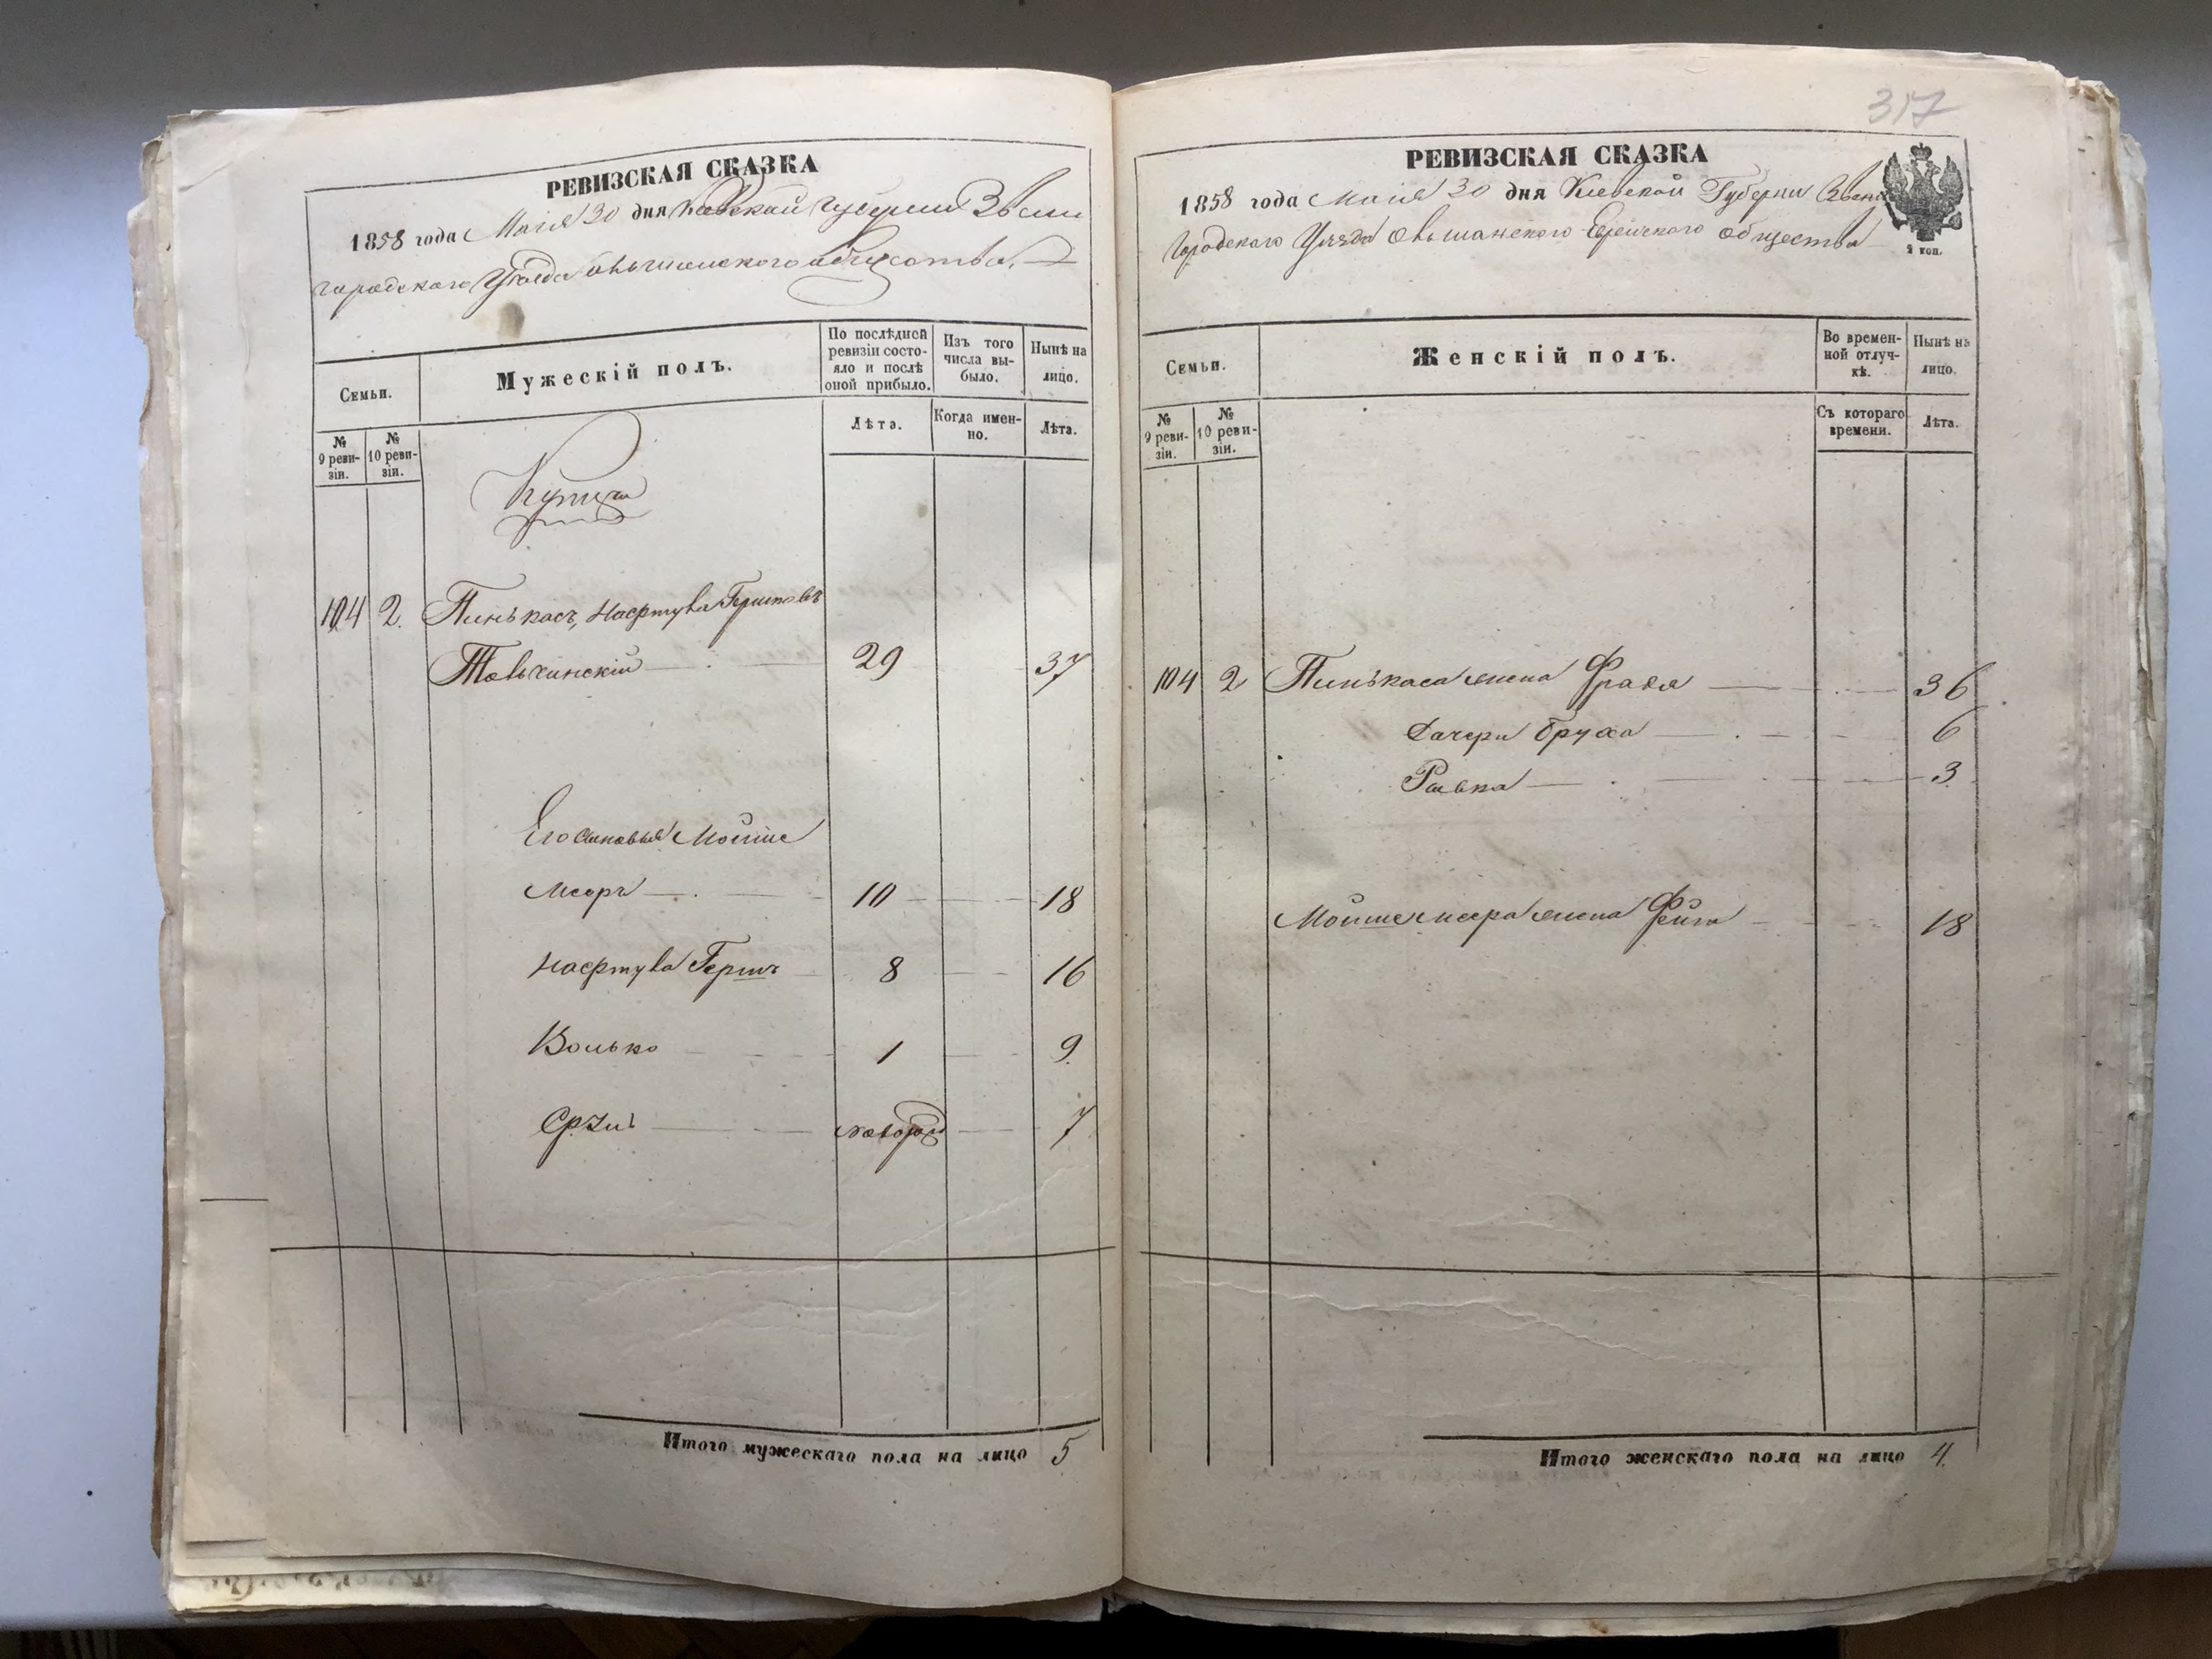 РЕВИЗСКАЯ СКАЗКА
1858 года Маія 30 дня Кіевской Губерніи Звени
городскаго Уезда Ольшанского общества.
Семьи.
Мужескій полъ.
По послѣдней ревизіи состояло и послѣ оной прибыло.
Изъ того числа выбыло.
Нынѣ на лицо.
№ 9 ревизіи.
№ 10 ревизіи.
Лѣта.
Когда именно.
Лѣта.
Купцы
104 2. Пинькасъ, Нафтула Гершковъ
Тальчинскій 29 37
Его сыновья Мойше
Меоръ 10 18
Нафтула Гершъ 8 16
Волько 1 9
Сруль новорож 7
Итого мужескаго пола на лицо 5
317
РЕВИЗСКАЯ СКАЗКА
1858 года Маія 30 дня Кіевской Губерніи Звени
городскаго Уезда Ольшанского Еврейского общества
2 коп.
Семьи.
Женскій полъ.
Во временной отлучкѣ.
Нынѣ на лицо.
№ 9 ревизіи.
№ 10 ревизіи.
Съ котораго времени.
Лѣта.
104 2 Пинькаса жена Фрадя 36
Дочери Бруха 6
Равка 3
Мойше меера жена Фейга 18
Итого женскаго пола на лицо 4.